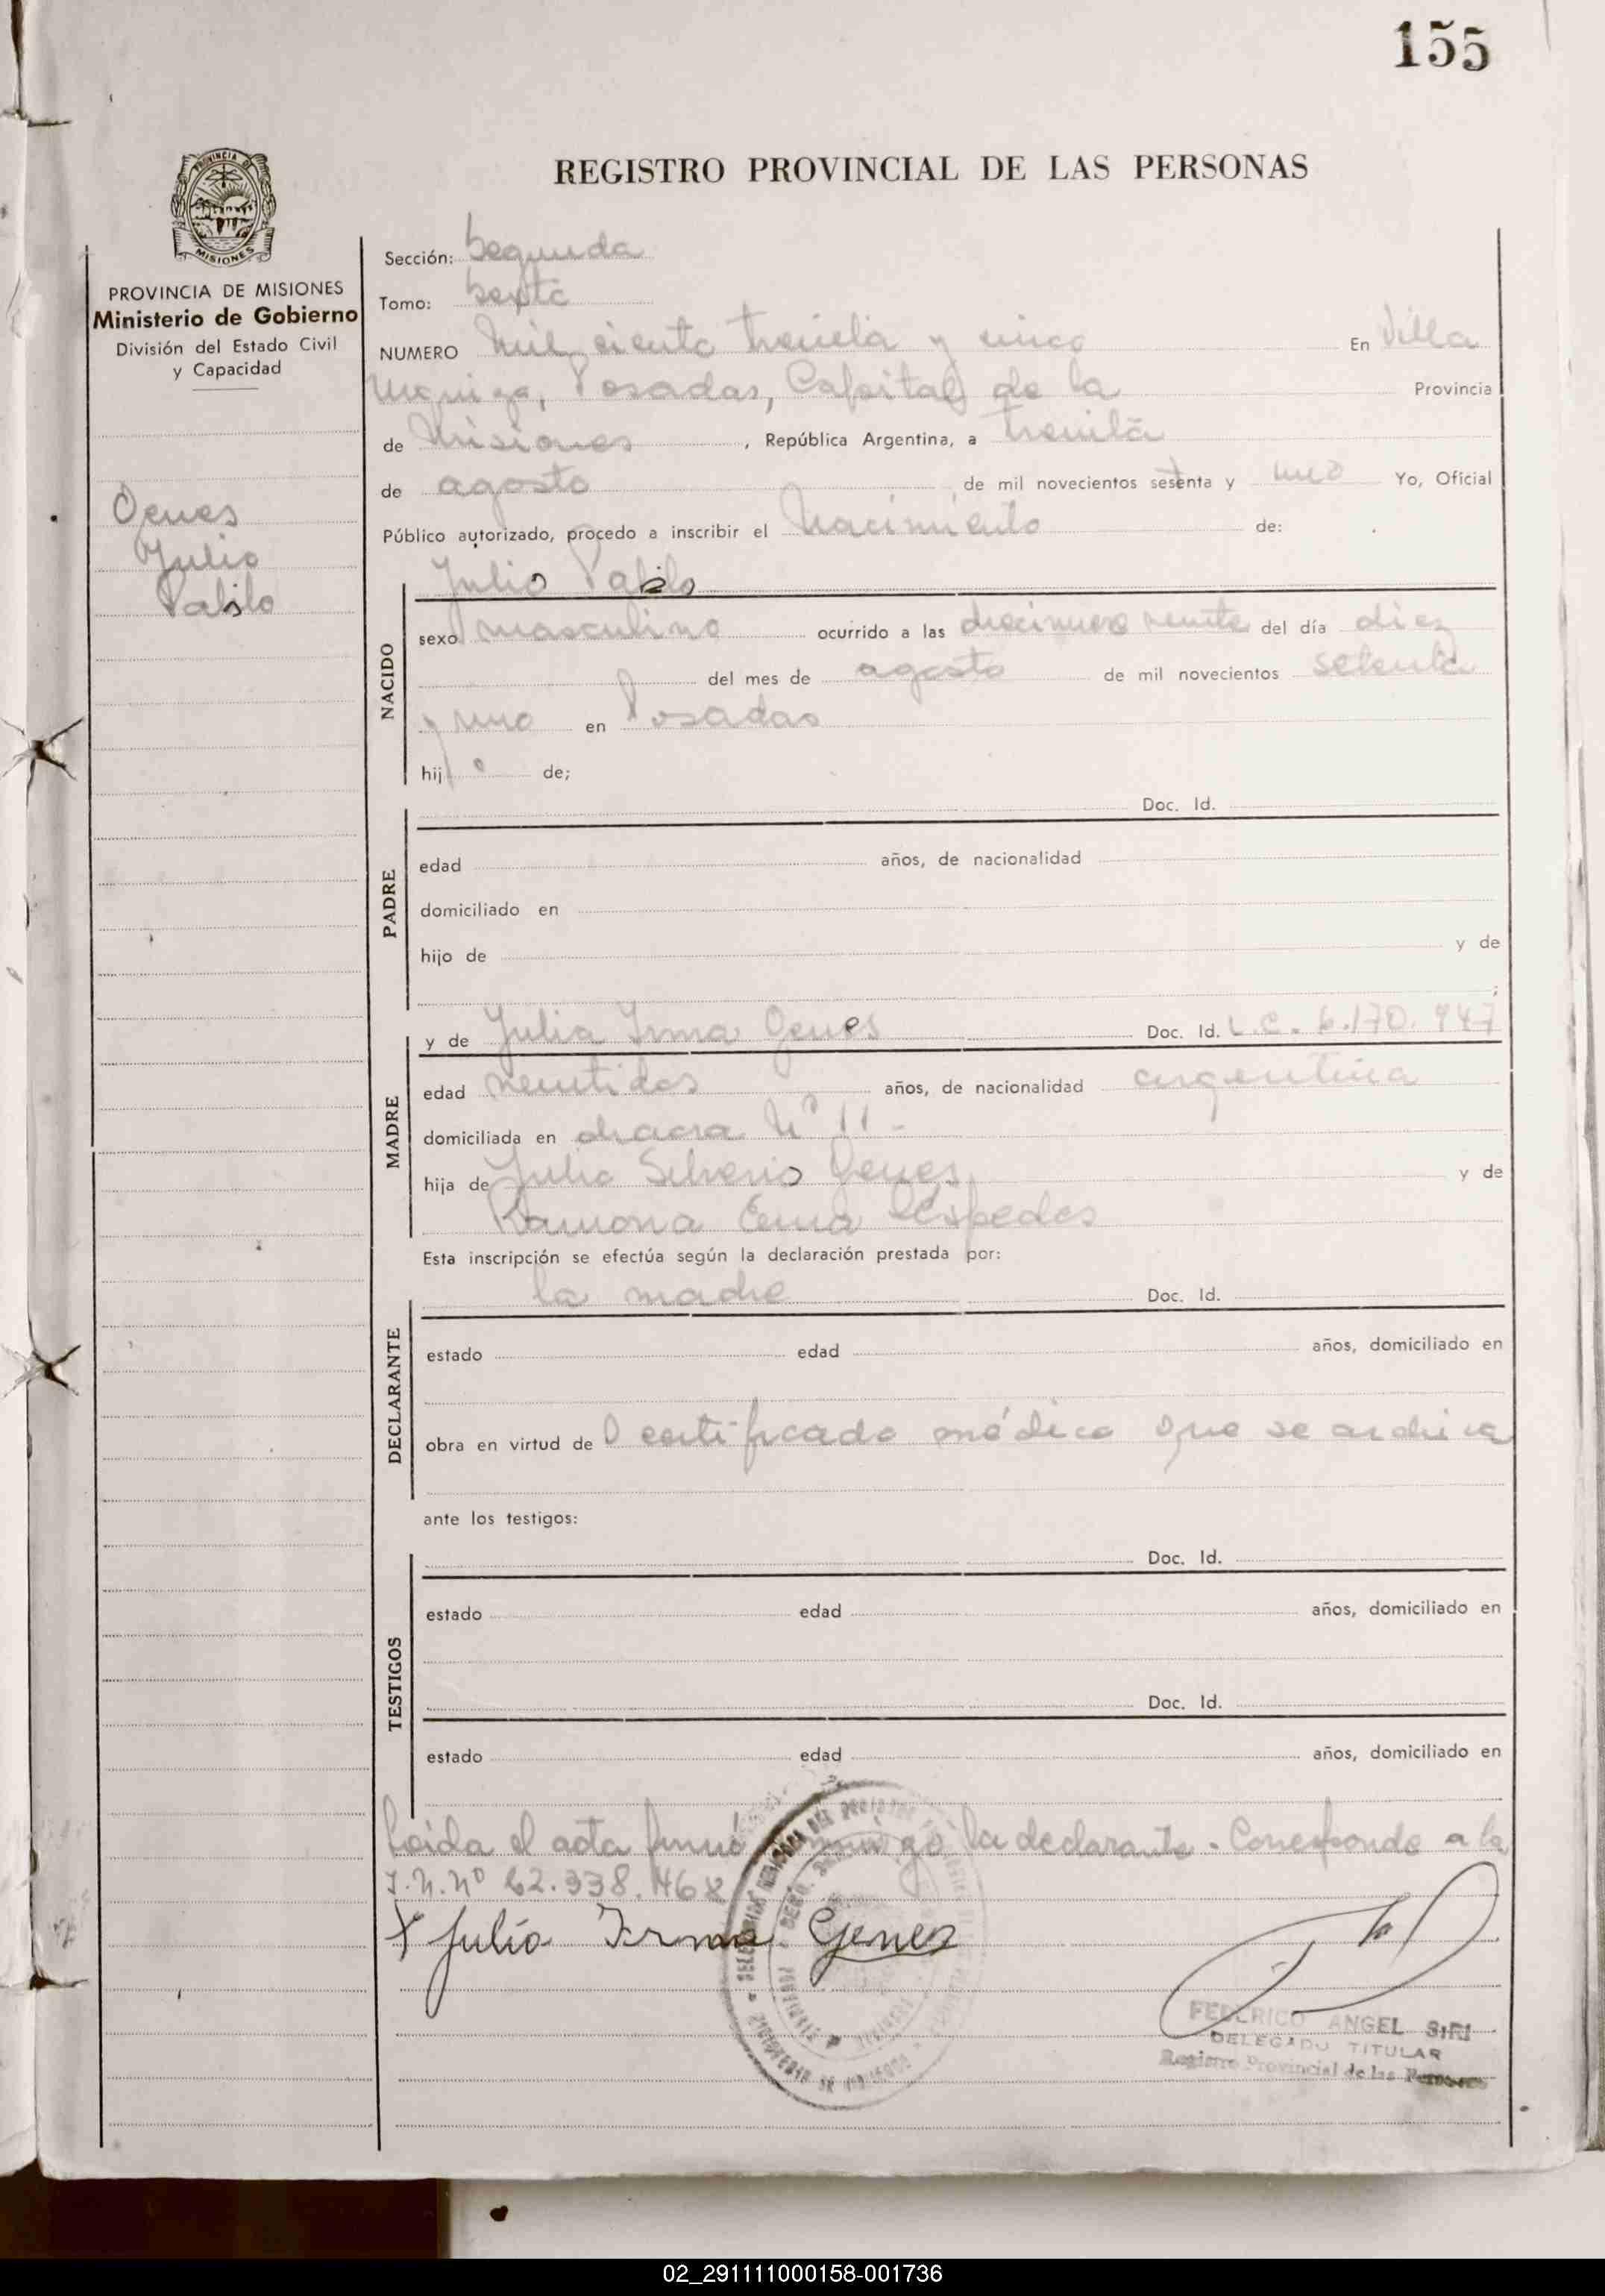 155
REGISTRO PROVINCIAL DE LAS PERSONAS
PROVINCIA DE
MISIONES
PROVINCIA DE MISIONES
Ministerio de Gobierno
División del Estado Civil
y Capacidad
Genes
Julio
Pablo
Sección: Segunda
Tomo: Sexto
NUMERO Mil ciento treinta y cinco En Villa
Urquiza, Posadas, Capital de la Provincia
de Misiones, República Argentina, a treinta
de agosto de mil novecientos setenta y uno Yo, Oficial
Público autorizado, procedo a inscribir el Nacimiento de:
Julio Pablo
NACIDO
sexo masculino ocurrido a las diecinueve veinte del día diez
del mes de agosto de mil novecientos setenta
y uno en Posadas
hij o de;
Doc. Id.
PADRE
edad años, de nacionalidad
domiciliado en
hijo de y de
;
MADRE
y de Julia Irma Genes Doc. Id. L.C. 6.170.947
edad veintidos años, de nacionalidad argentina
domiciliada en chacra Nº 11 -
hija de Julio Silverio Genes y de
Ramona Ema Céspedes
Esta inscripción se efectúa según la declaración prestada por:
la madre Doc. Id.
DECLARANTE
estado edad años, domiciliado en
obra en virtud de certificado médico que se archiva
ante los testigos:
Doc. Id.
TESTIGOS
estado edad años, domiciliado en
Doc. Id.
estado edad años, domiciliado en
Leída el acta firmó la declarante - Corresponde a la
I.N. Nº 22.338.468
x Julia Irma Genes
FEDERICO ANGEL SIRI
DELEGADO TITULAR
Registro Provincial de las Personas
02_291111000158-001736